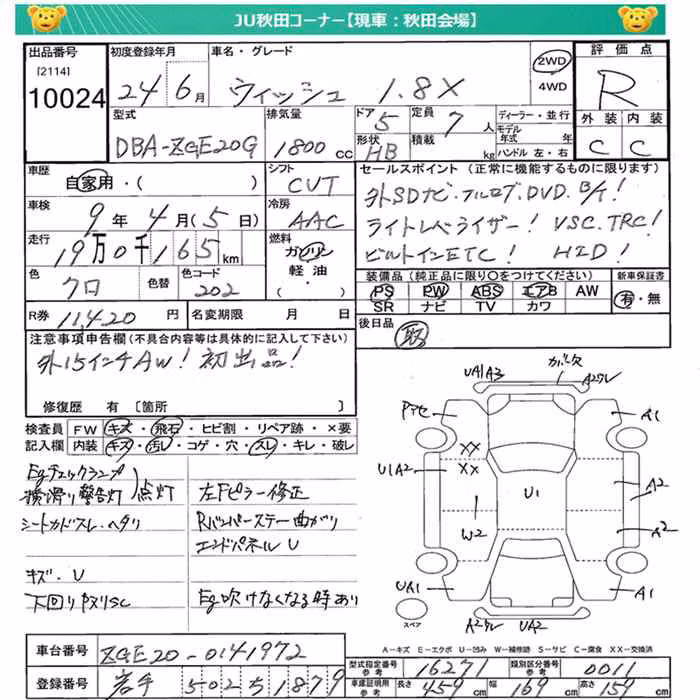 JU秋田コーナー【現車：秋田会場】
出品番号 初度登録年月 車名・グレード 評価点
[2114]
10024 24 6月 ウィッシュ 1.8X 2WD 4WD R
型式 排気量 ドア 5 定員 7人 ディーラー・並行 外装 内装
モデル年式 年
DBA-ZGE20G 1800cc 形状 HB 積載 kg ハンドル 左・右 C C
車歴 シフト セールスポイント (正常に機能するものに限ります)
自家用・( ) CVT 外SDナビ・フルセグ.DVD.B/T!
車検 冷房
9年4月(5日) AAC ライトレベライザー! VSC.TRC!
走行 燃料
19万0千165km ガソリン ビルトインETC! HID!
軽油・( )
色 色替 色コード 装備品(純正品に限り○をつけてください) 新車保証書
クロ 202 PS PW ABS エアB AW 有・無
SR ナビ TV カワ
R券 11,420円 名変期限 月 日 後日品 取
注意事項申告欄(不具合内容等は具体的に記入して下さい)
外15インチAW! 初出品!
修復歴 有 [箇所 ]
検査員記入欄 FW キズ・飛石・ヒビ割・リペア跡・×要
内装 キズ・汚レ・コゲ・穴・スレ・キレ・破レ
Egチェックランプ
横滑り警告灯 点灯 左Fピラー修正
シートカドスレ・ヘタリ Rバンパーステー曲がり
エンドパネルU
キズ・U
下回りPスリSC Eg吹けなくなる時あり
UA1A3 カバー欠 A2ワレ
A1
XX
U1A2 XX A2
U1
W2 A2
UA1 A1
スペア A2ワレ UA2
A－キズ E－エクボ U－凹み W－補修跡 S－サビ C－腐食 XX－交換済
車台番号 ZGE20-0141972
型式指定番号参考 16271 類別区分番号参考 0011
登録番号 岩手 502 51879
車庫証明用参考 長さ 459cm 幅 169cm 高さ 159cm